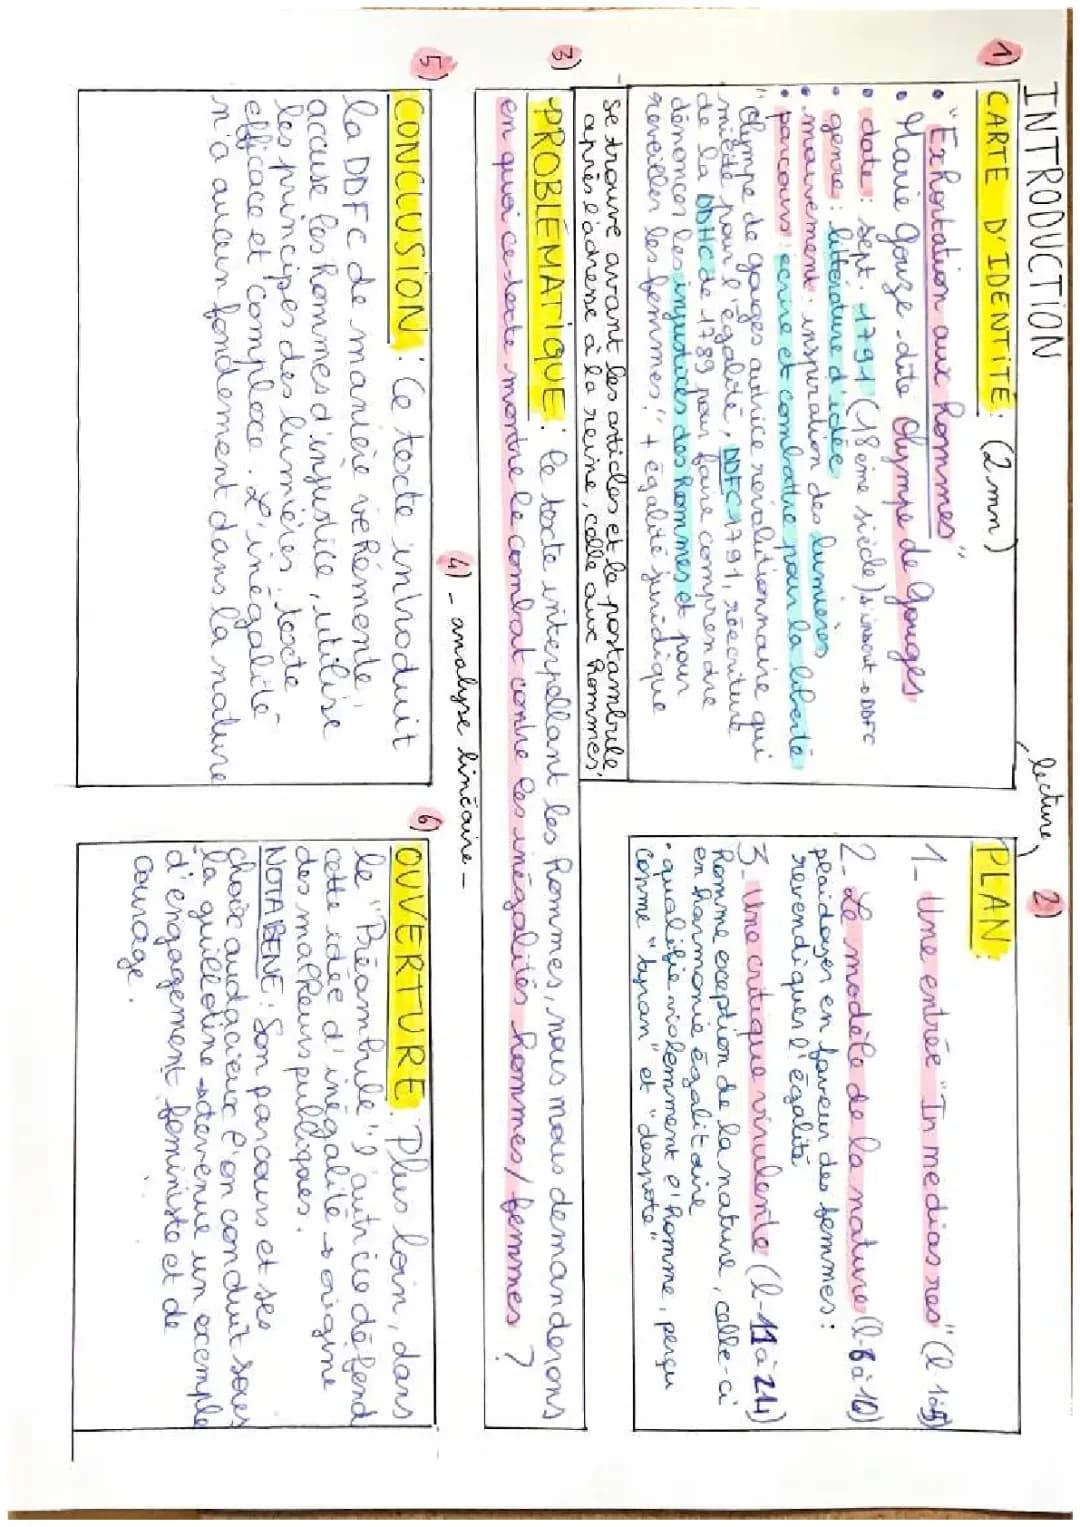 INTRODUCTION
1) CARTE D'IDENTITÉ: (2 mn)
• "Exhortation aux hommes"
• Marie Gouze dite Olympe de Gouges.
• date: sept. 1791 (18ème siècle) s'inscrit → DDFC
• genre: littérature d'idée
• mouvement: inspiration des lumières
• parcours: écrire et combattre pour la liberté
"Olympe de gouges autrice révolutionnaire qui
milite pour l'égalité, DDFC 1791, réécriture
de la DDHC de 1789 pour faire comprendre
dénoncer les injustices des hommes et pour
reveiller les femmes." + égalité juridique
se trouve avant les articles et le postambule,
après l'adresse à la reine, celle aux hommes.
lecture
2) PLAN:
1_ Une entrée "In medias res" (l.1à5)
2_ Le modèle de la nature (l-6 à 10)
plaidoyer en faveur des femmes:
revendiquer l'égalité
3_ Une critique virulente (l-11 à 24)
homme exception de la nature, celle-ci
en harmonie égalitaire
• qualifie violemment l'homme, perçu
comme "tyran" et "despote"
3) PROBLÉMATIQUE: le texte interpellant les hommes, nous nous demanderons
en quoi ce texte montre le combat contre les inégalités hommes/femmes ?
4) - analyse linéaire -
5) CONCLUSION: Ce texte introduit
la DDFC de manière véhémente,
accuse les hommes d'injustice, utilise
les principes des lumières. texte
efficace et complexe. L'inégalité
n'a aucun fondement dans la nature
6) OUVERTURE: Plus loin, dans
le "Préambule" l'autrice défend
cette idée d'inégalité → origine
des malheurs publiques.
NOTA BENE: Son parcours et ses
choix audacieux l'on conduit sous
la guillotine → devenue un exemple
d'engagement féministe et de
courage.